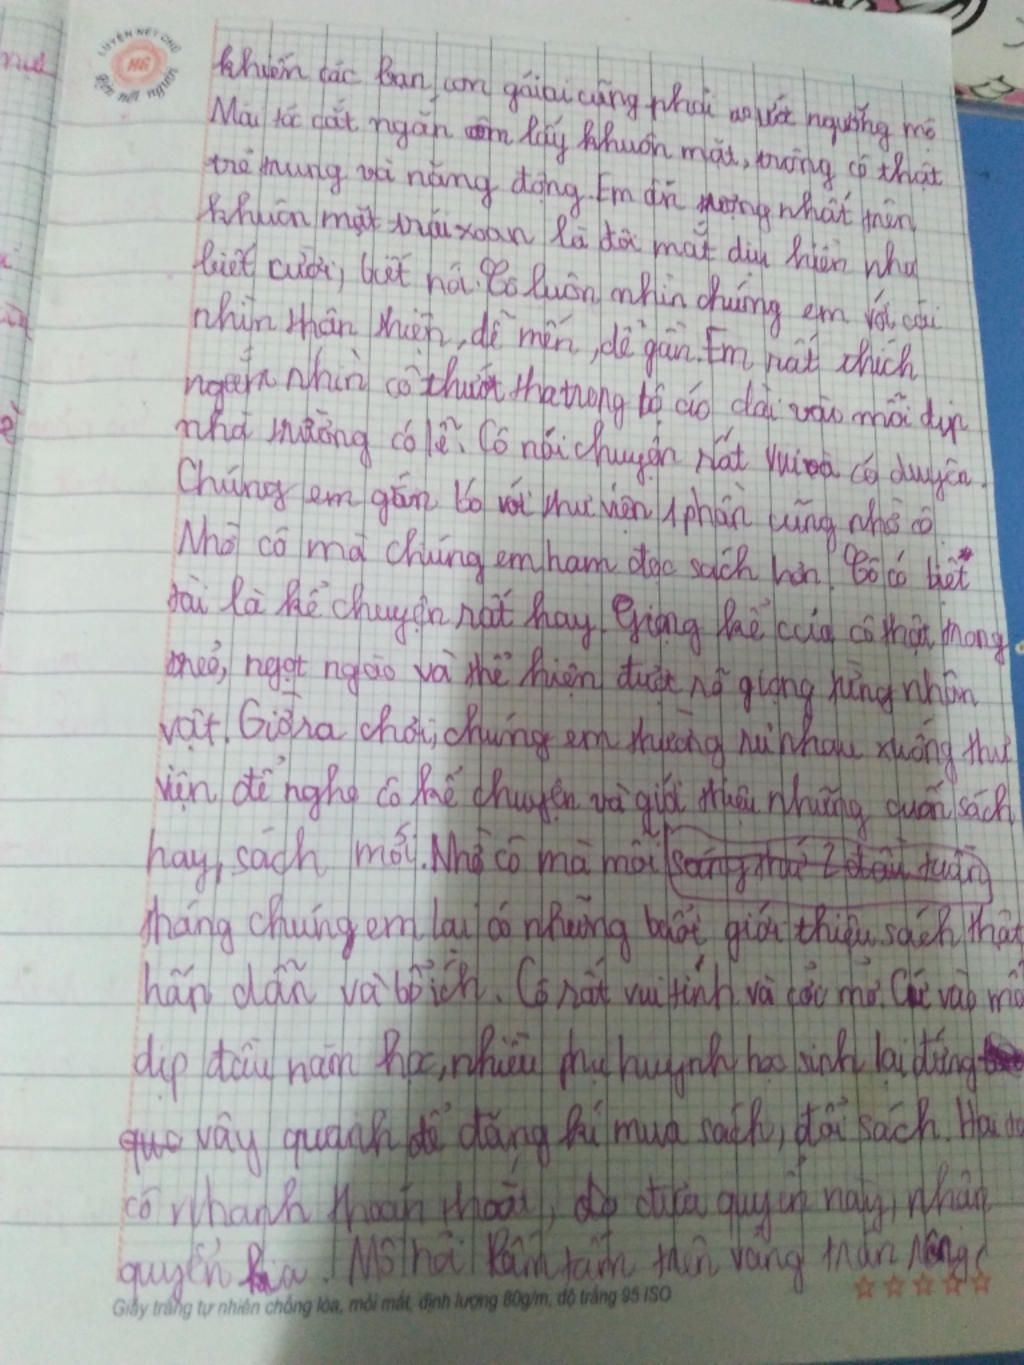 LUYỆN NÉT CHỮ
HG
Rèn nết người
khiến các bạn con gái ai cũng phải ngưỡng mộ
Mái tóc cắt ngắn ôm lấy khuôn mặt, trông cô thật
trẻ trung và năng động. Em ấn tượng nhất trên
khuôn mặt trái xoan là đôi mắt dịu hiền như
biết cười, biết nói. Cô luôn nhìn chúng em với cái
nhìn thân thiện, dễ mến, dễ gần. Em rất thích
ngắm nhìn cô thướt tha trong bộ áo dài vào mỗi dịp
nhà trường có lễ. Cô nói chuyện rất vui và có duyên.
Chúng em gắn bó với thư viện 1 phần cũng nhờ cô.
Nhờ cô mà chúng em ham đọc sách hơn. Cô có biết
tài là kể chuyện rất hay. Giọng kể của cô thật trong
trẻo, ngọt ngào và thể hiện được rõ giọng từng nhân
vật. Giờ ra chơi, chúng em thường rủ nhau xuống thư
viện để nghe cô kể chuyện và giới thiệu những cuốn sách
hay, sách mới. Nhờ cô mà mỗi sáng thứ 2 đầu tuần
tháng chúng em lại có những buổi giới thiệu sách thật
hấp dẫn và bổ ích. Cô rất vui tính và cởi mở. Cứ vào mỗ
dịp đầu năm học, nhiều phụ huynh học sinh lại đứng
vây quanh để đăng kí mua sách, đổi sách. Hai ta
cô nhanh thoăn thoắt, đưa quyển này, nhận
quyển kia. Mồ hôi lấm tấm trên vầng trán rộng
Giấy trắng tự nhiên chống lóa, mỏi mắt, định lượng 80g/m, độ trắng 95 ISO